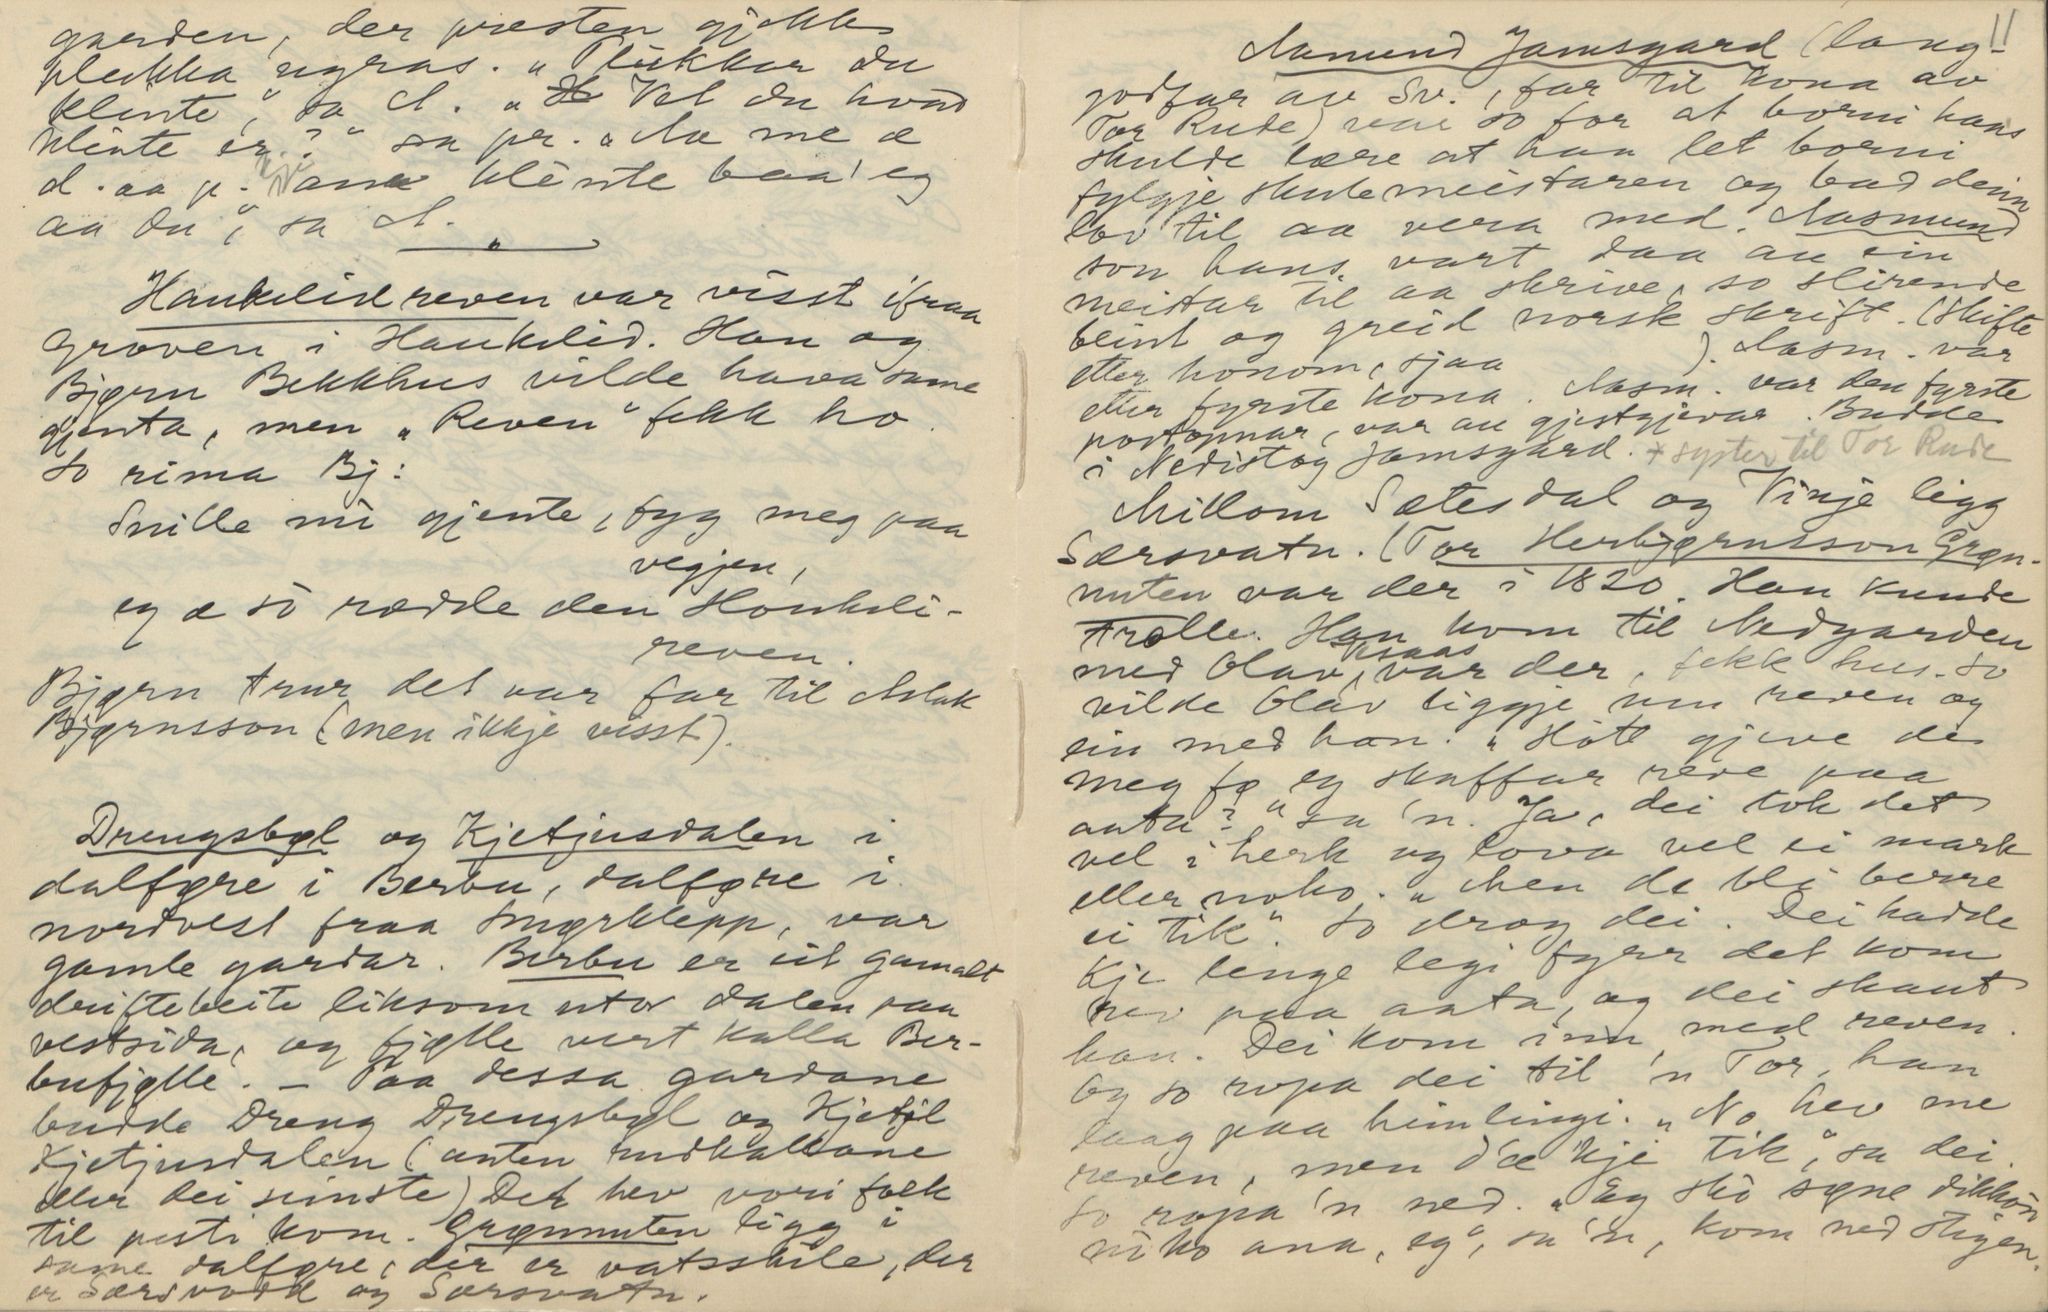 garden, der presten gjekk
plukka ugras. „Plukkar du
klinte," sa A. „Vet du hvad
klinte er?" sa pr. „Aa me æ
d. aa p. ikkje ana klènte baa' eg
aa du", sa A.
Haukelidreven var visst ifraa
Grøven i Haukelid. Han og
Bjørn Bekkhus vilde hava same
gjenta, men „Reven" fekk ho.
So rima Bj:
Snille mi gjente, fyg meg paa
vegjen,
eg æ so rædde den Haukeli-
reven.
Bjørn trur det var far til Aslak
Bjørnsson (men ikkje visst).
Drengsbøl og Kjetjusdalen i
dalføre i Berbu, dalføre i
nordvest fraa Smørklepp, var
gamle gardar. Berbu er eit gamalt
driftebeite liksom utor dalen paa
vestsida, og fjølle vert kalla Ber-
bufjølle. – Paa dessa gardane
budde Dreng Drengsbøl og Kjetil
Kjetjusdalen (anten rudkallane
eller dei sinste) Det hev vori folk
til pesti kom. Grønnuten ligg i
same dalføre, der er vatsskile, der
er Særsvodd og Særsvatn.
11
Aamund Jamsgard (lang-
godfar av Sv., far til kona av
Tor Rude) var so for at borni hans
skulde lære at han let borni
fylgje skulemeistaren og bad dei
lov til aa vera med. Aasmund
son hans, vart daa au ein
meistar til aa skrive, so slirende
beint og greid norsk skrift. (Skifte
etter honom, sjaa ). Aasm. var
etter fyrste kona. Aasm. var den fyrste
postopnar, var au gjestgjevar. Budde
i Nedistog Jamsgard. + syster til Tor Rude
Millom Sætesdal og Vinje ligg
Særsvatn. (Tor Herbjørnsson Grøn-
nuten var der i 1820. Han kunde
trolle. Han kom til Nedgarden
med Olav Aasaas var der, fekk hus. So
vilde Olav liggje um reven og
ein med han. „Hott gjeve de
meg fø eg skaffar reve paa
aata?" sa 'n. Ja, dei tok det
vel i herk og lova vel ei mark
eller noko. „Men de bli berre
ei tik". So drog dei. Dei hadde
kje lenge legi fyrr det kom
rev paa aata, og dei skaut
han. Dei kom inn med reven.
Og so ropa dei til 'n Tor, han
laag paa himlingi. „No hev me
reven, men d'æ 'kje tik", sa dei.
So ropa 'n ned. „Eg sko søne dikkón
niko ana, eg", sa 'n, kom ned stigen.